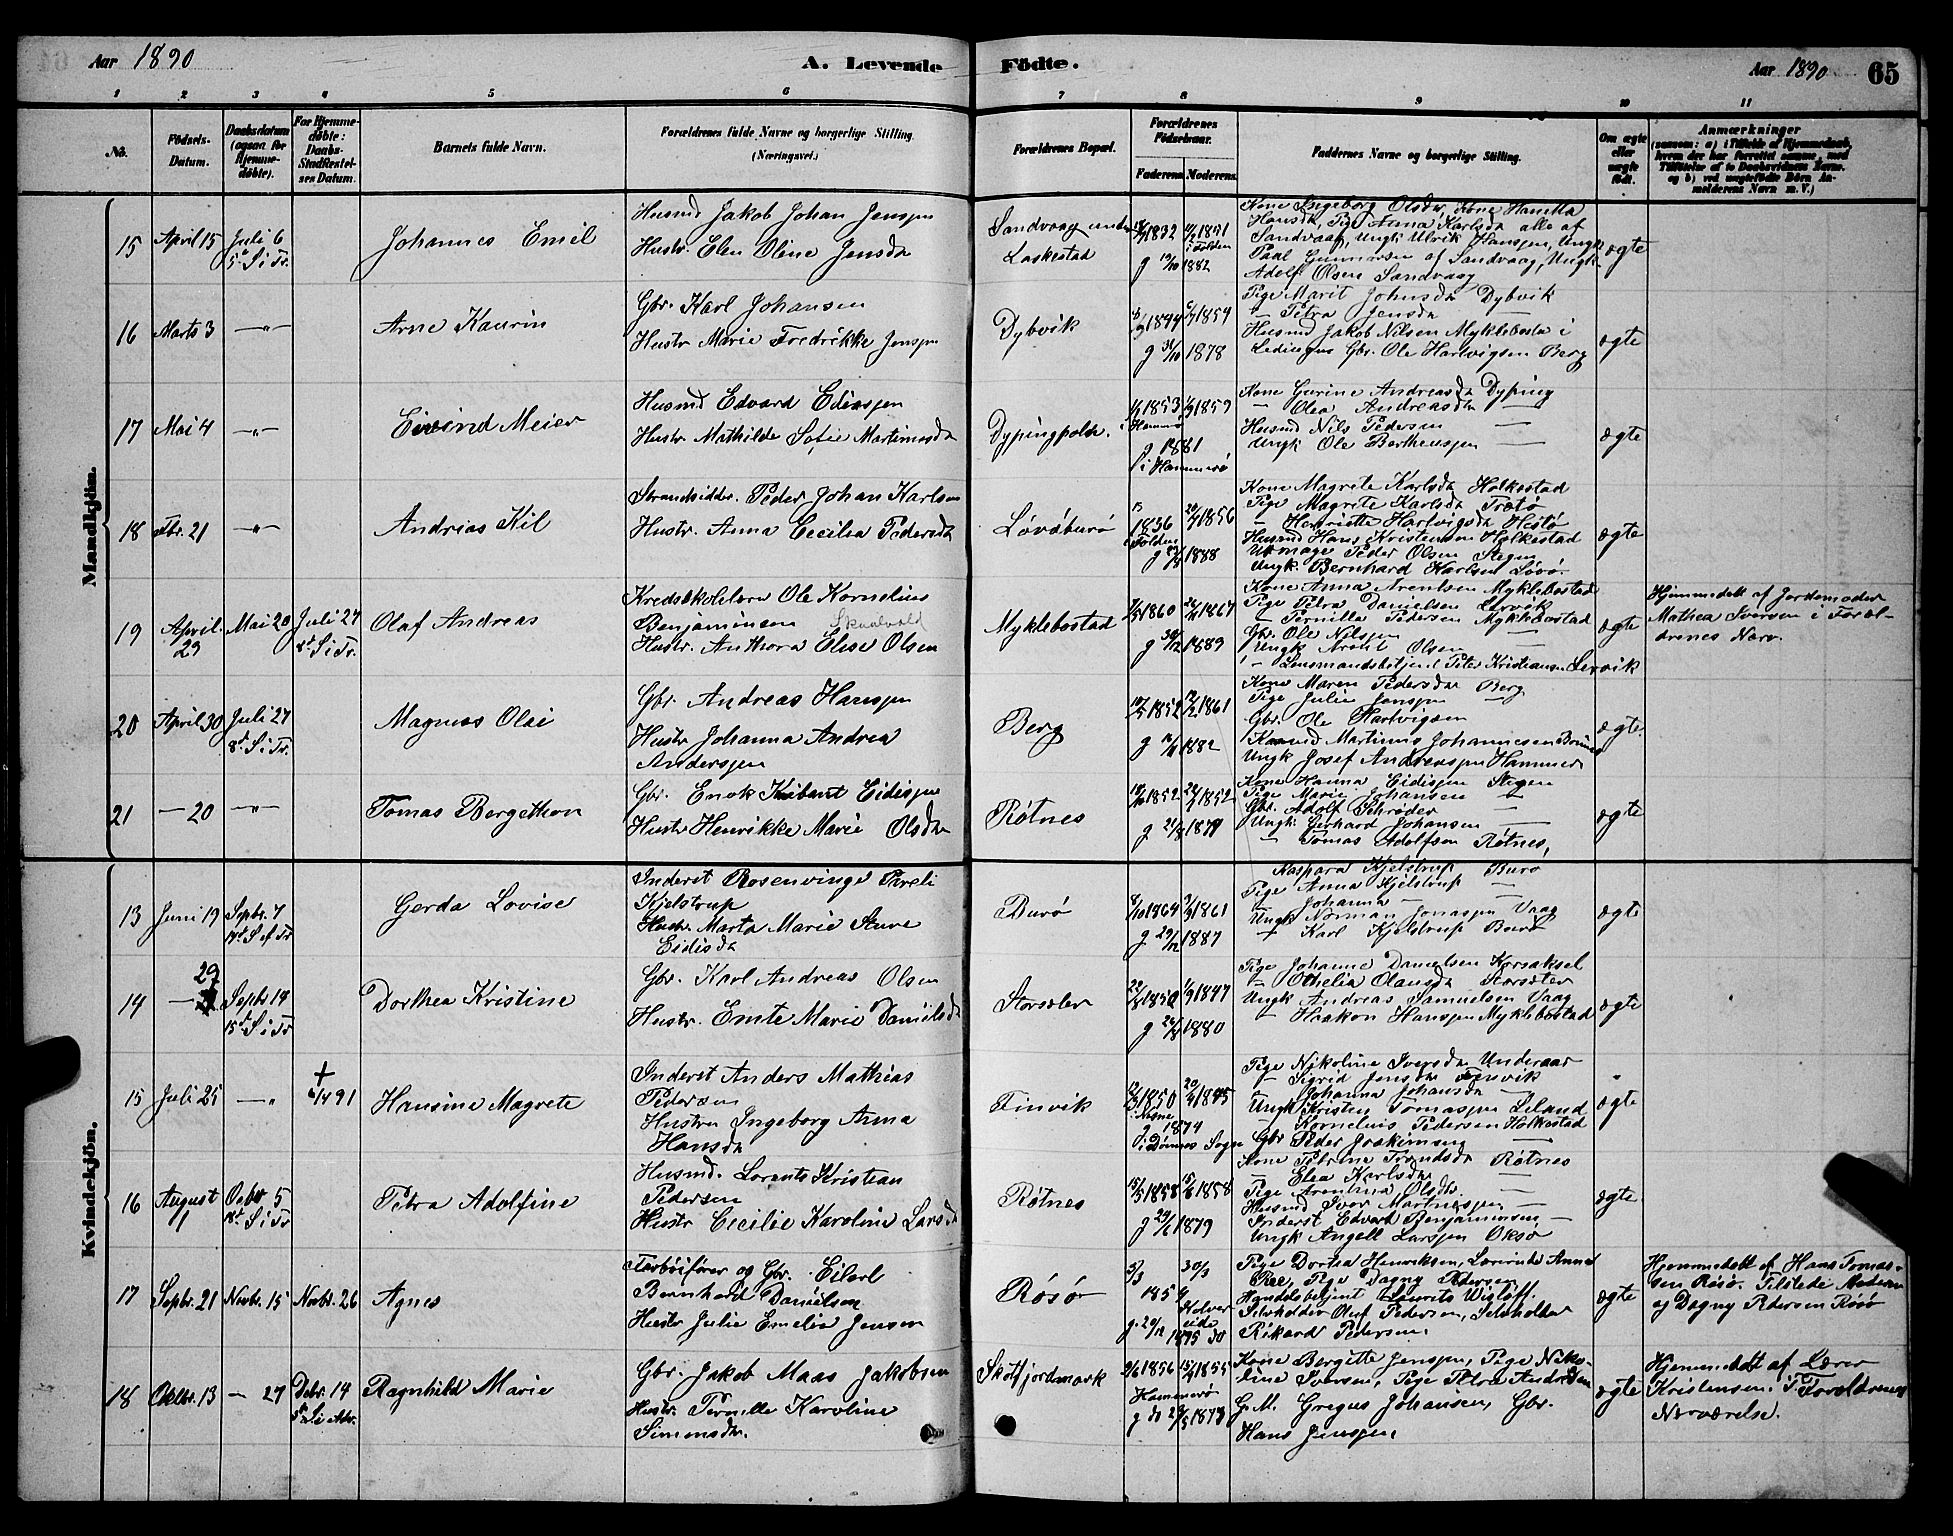 Aar 1890
A. Levende Födte.
Aar 1890
65
1 2 3 4 5 6 7 8 9 10 11
No.
Födsels-Datum.
Daabsdatum (ogsaa for Hjemme-döbte).
For Hjemme-döbte: Daabs-Stadfestel-ses Datum.
Barnets fulde Navn.
Forældrenes fulde Navne og borgerlige Stilling.
(Næringsvei.)
Forældrenes Bopæl.
Forældrenes Födselsaar.
Faderens. Moderens.
Faddernes Navne og borgerlige Stilling.
Om ægte eller uægte födt.
Anmærkninger
(saasom: a) i Tilfælde af Hjemmedaab, hvem der har forrettet samme, med Tilföielse af to Daabsvidners Navne, og b) ved uægtefödte Börn An-melderens Navn m. V.)
Mandkjön.
15 April 15 Juli 6 5 S i Tr.
Johannes Emil
Husmd Jakob Johan Jenssen
Hustr. Elen Oline Jensda
Sandvaag under Laskestad
1832 1851 i Folden
g 1882
Kone Ingeborg Olsda, Kone Hanna
Hansda, Pige Anna Karlsda alle af
Sandvaag, Ungk Ulrik Hanssen, Ungk
Paal Gunnarsen af Sandvaag, Ungk
Adolf Olsen Sandvaag
ægte
16 Marts 3 —"—
Arne Kaurin
Gbr. Karl Johansen
Hustr Marie Fredrikke Jenssen
Dybvik
1844 1854
g 1878
Pige Marit Johnsda Dybvik
— Petra Jensda —
Husmd Jakob Nilsen Myklebosta i
Ledingen Gbr. Ole Hartvigsen Berg
ægte
17 Mai 4 —"—
Eivind Meier
Husmd Edvard Edissen
Hustr Mathilde Sofie Martinusda
Dypingpolle.
1853 1859
i Hammerø
g 1881
i Hammerø
Kone Gurine Andreasda Dyping
— Olea Andreasda —
Husmd Nils Pedersen —
Ungk Ole Bertheussen —
ægte
18 Fbr. 21 —"—
Andreas Kil
Strandsidder. Peder Johan Karlsen
Hustr. Anna Cecilia Pedersda
Løvøburø
1836 1856
i Folden
g 1888
Kone Magrete Karlsda Holkestad
Pige Magrete Karlsda Trøtø
— Henriette Hartvigsda Hestø
Husmd Hans Kristensen Holkestad
Urmager Peder Olsen Stegen
Ungk. Bernhard Karlsen Løvø.
ægte
19 April 29 Mai 20 Juli 27 8d S i Tr.
Olaf Andreas
Kredsskolelærer Ole Kornelius
Benjaminsen Skaalvold
Hustr. Anthora Elise Olsen
Myklebostad
1860 1867
g 30/12 1889
Kone Anna Arentsen Myklebostad
Pige Petra Danielsen Lervik
— Pernille Pedersen Myklebostad
Gbr. Ole Nilssen —
Ungk Arolt Olsen —
— Lensmandsbetjent Peter Kristiansen Lervik
ægte
Hjemmedøbt af Jordemoder
Mathea Iversen i Foræl-
drenes Nærv.
20 April 30 Juli 27 8d S i Tr.
Magnus Olai
Gbr. Andreas Hanssen
Hustr Johanna Andrea
Anderssen
Berg
1852 1861
g 1882
Kone Maren Pedersda Berg
Pige Julie Jenssen —
Gbr. Ole Hartvigsen
Martinus Johannesen
Ungk Josef Andreassen Hammer
ægte
21 — 20 —"—
Tomas Bergethon
Gbr. Enok Eidissen
Hustr Henrikke Marie Olsda
Røtnes
1852 1852
g 1879
Kone Hanna Eidissen Stegen
Pige Marie Johansen —
Gbr. Adolf Schrøder —
Ungk. Gerhard Johansen —
— Tomas Adolfsen Røtnes,
ægte
Kvindekjön.
13 Juni 19 Septbr. 7 14d S ef Tr
Gerda Lovise
Inderst Rosenvinge Pareli
Kjelstrup
Hustr. Marta Marie Sture
Eidisda
Burø
1864 1861
g 29/12 1887
Kaspara Kjelstrup Burø
Pige Anna Kjelstrup —
— Johanna —
Ungk Norman Jonassen Vaag
— Karl Kjelstrup Burø
ægte
14 — 29 Septbr 14 15d S i Tr
Dorthea Kristine
Gbr. Karl Andreas Olsen
Hustr. Emte Marie Danielsda
Storsæter
1850 1847
g 1880
Pige Johanne Danielsen Korsaksel
— Othelia Olausda Storsæter
Ungk Andreas Samuelsen Vaag
— Haakon Hanssen Myklebostad
ægte
15 Juli 25 —"— + 91
Hansine Magrete
Inderst Anders Mathias
Pedersen
Hustru Ingeborg Anna
Hansda
Finvik
1850 1845
i Nesne
g 1874
i Dønnes Sogn
Pige Nikoline Iversda Underaas
— Sigrid Jensda Finsvik
— Johanna Johansda —
Ungk Kristen Tomassen Leland
— Kornelius Pedersen Holkestad
Gbr Peder Joakimsen —
ægte
16 August 1 Octbr 5 18d S i Tr
Petra Adolfine
Husmd. Lorents Kristian
Pedersen
Hustr Cecilie Karoline Larsda
Røtnes
1858 1858
g 1879
Kone Petrine Trondsda Røtnes
— Elea Karlsda —
Pige Arentina Olsda —
Husmd Iver Martinessen —
Inderst Edvart Benjaminsen —
Ungk Angell Larssen Oksø
ægte
17 Septbr. 21 Novbr. 15 Novbr. 26
Agnes
og Gbr. Eilert
Bernhard Danielsen
Hustr Julie Emelie Jensen
Røsø
5/3 30/3
1854
g. 20/12 1875
Pige Dortea Henriksen, Anna
Pige Dagny Pedersen
Handelsbetjent Laurits Wisløff,
Selvholder Oluf Pedersen, Selvholder
Rikard Pedersen
ægte
Hjemmedøbt af Hans Tomas-
sen Røsø. Tilstede Moderen
og Dagny Pedersen Røsø
18 Oktbr. 13 — 27 Debr. 14 3 S i Adv.
Ragnhild Marie
Gbr. Jakob Maas Jakobsen
Hustr. Pernille Karoline
Simonsda.
Skotsfjordmark
1856 1855
Hammerø
g do 1879
Kone Bergitte Jenssen, Pige Niko-
line Iversen, Pige Petra Andersen
G. M. Gregus Johansen, Gbr.
Hans Jenssen
ægte
Hjemmedøbt af Lærer
Kristensen. i Forældrenes
Nærværelse.